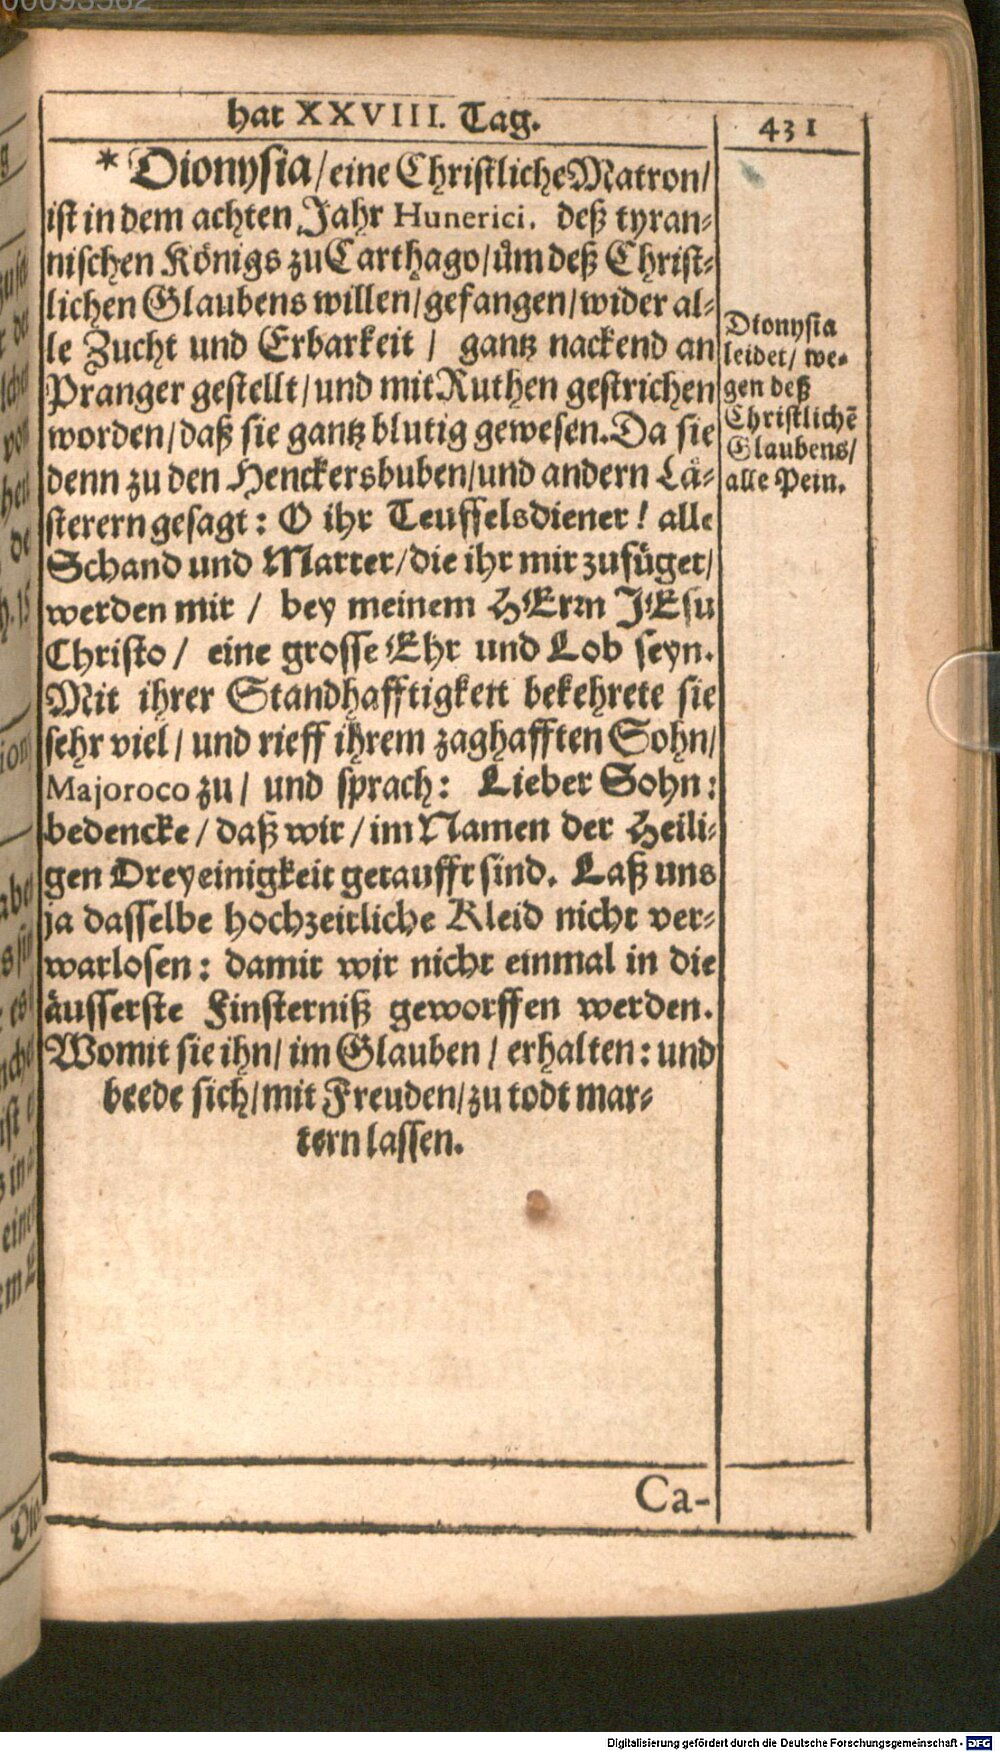 hat XXVIII. Tag.
431
* Dionysia/eine Christliche Matron/
ist in dem achten Jahr Hunerici. deß tyran-
nischen Königs zu Carthago/üm deß Christ-
lichen Glaubens willen/gefangen/wider al-
le Zucht und Erbarkeit / gantz nackend an
Pranger gestellt/und mit Ruthen gestrichen
worden/daß sie gantz blutig gewesen. Da sie
denn zu den Henckersbuben/und andern Lä-
sterern gesagt: O ihr Teuffelsdiener! alle
Schand und Marter/die ihr mir zufüget/
werden mir / bey meinem HErrn JEsu
Christo / eine grosse Ehr und Lob seyn.
Mit ihrer Standhafftigkeit bekehrete sie
sehr viel / und rieff ihrem zaghafften Sohn/
Majoroco zu / und sprach: Lieber Sohn:
bedencke / daß wir / im Namen der Heili-
gen Dreyeinigkeit getaufft sind. Laß uns
ja dasselbe hochzeitliche Kleid nicht ver-
warlosen: damit wir nicht einmal in die
äusserste Finsterniß geworffen werden.
Womit sie ihn/ im Glauben / erhalten: und
beede sich/mit Freuden/zu todt mar-
tern lassen.
Dionysia
leidet/ we-
gen deß
Christlichē
Glaubens/
alle Pein.
Ca-
Digitalisierung gefördert durch die Deutsche Forschungsgemeinschaft - DFG